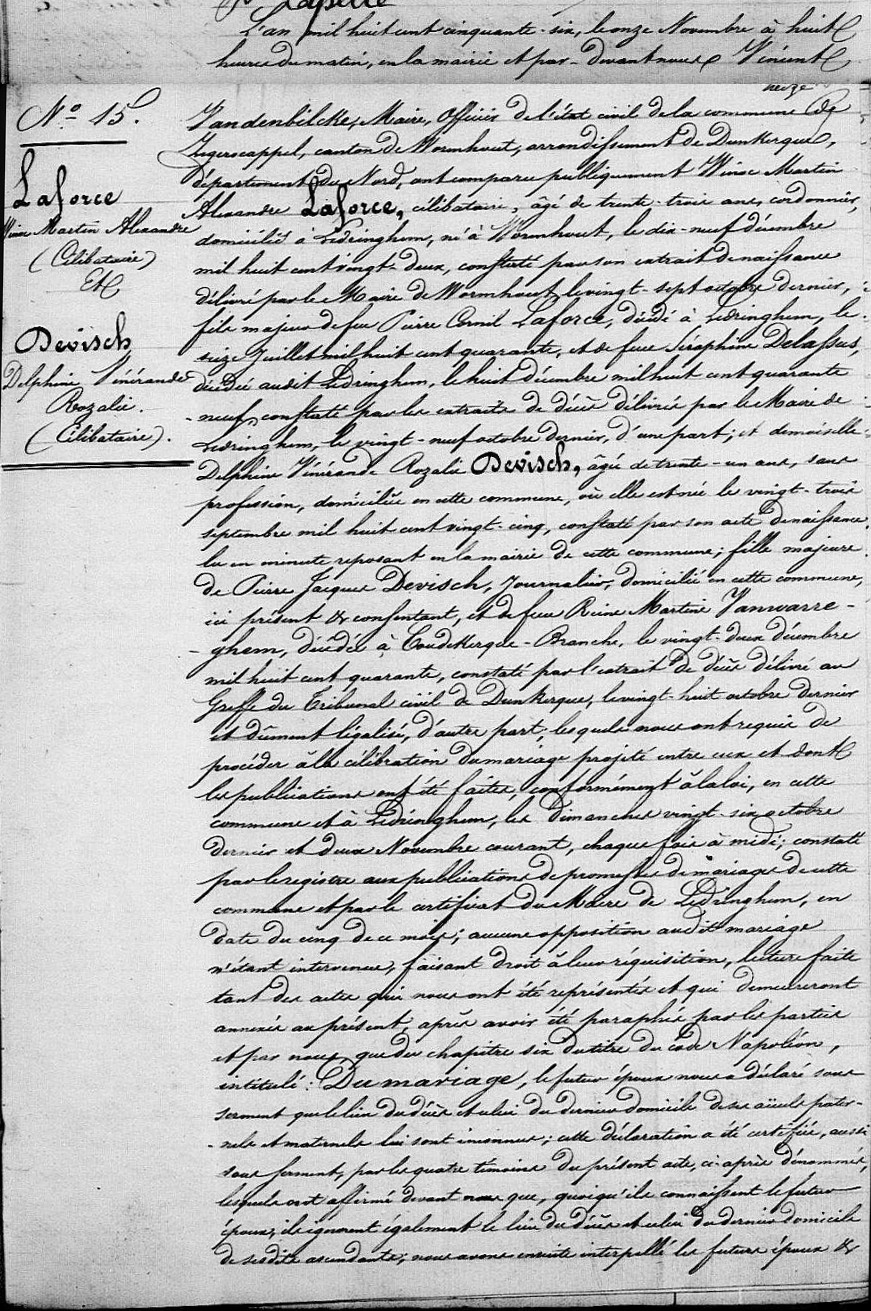 Lapelle
L'an mil huit cent cinquante-six, le onze Novembre à huit
heures du matin, en la mairie et par-devant nous Vincent
N.º 15.
Laforce
Winoc Martin Alexandre
(Célibataire)
Et
Devisch
Delphine Vénérande
Rozalie.
(Célibataire).
Vandenbilcke, Maire, Officier de l'état civil de la commune de
Zegerscappel, canton de Wormhout, arrondissement de Dunkerque,
département du Nord, ont comparu publiquement Winoc Martin
Alexandre Laforce, célibataire, âgé de trente-trois ans, cordonnier,
domicilié à Ledringhem, né à Wormhout, le dix-neuf décembre
mil huit cent vingt-deux, constaté par son extrait de naissance
délivré par le Maire de Wormhout le vingt-sept octobre dernier,
fils majeur de feu Pierre Cornil Laforce, décédé à Ledringhem, le
seize Juillet mil huit cent quarante, et de feue Séraphine Delassus,
décédée audit Ledringhem, le huit décembre mil huit cent quarante
neuf, constaté par les extraits de décès délivrés par le Maire de
Ledringhem, le vingt-neuf octobre dernier, d'une part; et demoiselle
Delphine Vénérande Rozalie Devisch, âgée de trente-un ans, sans
profession, domiciliée en cette commune, où elle est née le vingt-trois
septembre mil huit cent vingt-cinq, constaté par son acte de naissance
lu en minute reposant en la mairie de cette commune; fille majeure
de Pierre Jacques Devisch, Journalier, domicilié en cette commune,
ici présent & consentant, et de feue Reine Martine Vanwarre-
-ghem, décédée à Coudekerque-Branche, le vingt-deux décembre
mil huit cent quarante, constaté par l'extrait de décès délivré au
Greffe du Tribunal civil de Dunkerque, le vingt-huit octobre dernier
et dûment légalisé, d'autre part; lesquels nous ont requis de
procéder à la célébration du mariage projeté entre eux et dont
les publications ont été faites, conformément à la loi, en cette
commune et à Ledringhem, les dimanches vingt-six octobre
dernier et deux Novembre courant, chaque fois à midi; constaté
par le registre aux publications de promesses de mariages de cette
commune et par le certificat du Maire de Ledringhem, en
date du cinq de ce mois; aucune opposition audit mariage
n'étant intervenue, faisant droit à leur réquisition, lecture faite
tant des actes qui nous ont été représentés et qui demeureront
annexés au présent, après avoir été paraphés par les parties
et par nous, que du chapitre six du titre du code Napoléon,
intitulé: Du mariage, le futur époux nous a déclaré sous
serment que le lieu du décès et celui du dernier domicile de ses aïeuls pater-
-nels et maternels lui sont inconnus; cette déclaration a été certifiée, aussi
sous serment, par les quatre témoins du présent acte, ci-après dénommés,
lesquels ont affirmé devant nous que, quoiqu'ils connaissent le futur
époux, ils ignorent également le lieu du décès et celui du dernier domicile
de sesdits ascendants; nous avons ensuite interpellé les futurs époux &